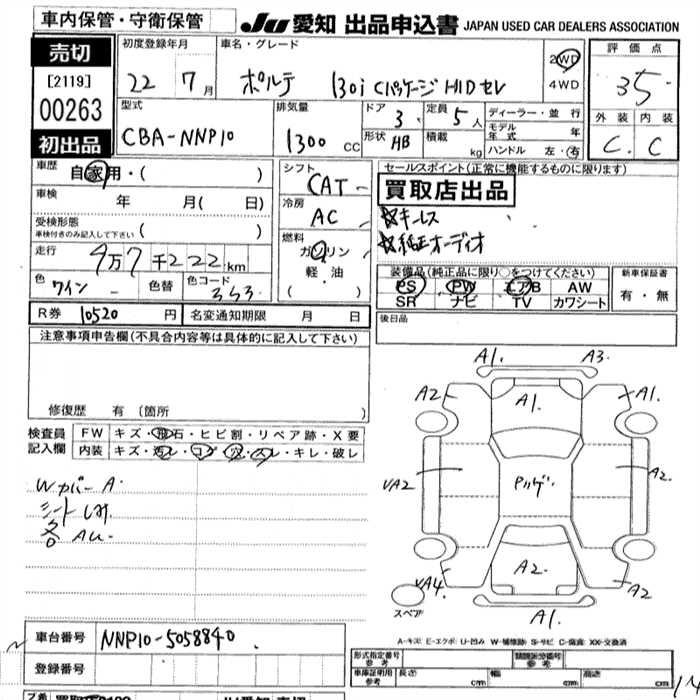 車内保管・守衛保管
JU 愛知 出品申込書 JAPAN USED CAR DEALERS ASSOCIATION
売切
[2119]
00263
初出品
初度登録年月
22 7月
車名・グレード
ポルテ 130i Cパッケージ HIDセレ
2WD
4WD
評価点
35
外装 内装
C C
型式
CBA-NNP10
排気量
1300 cc
ドア 3
形状 HB
定員 5人
積載 kg
ディーラー・並行
モデル年式 年
ハンドル 左・右
車歴
自家用・( )
車検
年 月( 日)
受検形態
車検付きのみ記入して下さい ( )
走行
9万7千222km
色
ワイン
色替
色コード
3S3
シフト
CAT
冷房
AC
燃料
ガソリン
軽・油
( )
セールスポイント(正常に機能するものに限ります)
買取店出品
☆キーレス
☆純正オーディオ
装備品(純正品に限り○をつけてください)
PS PW エアB AW
SR ナビ TV カワシート
新車保証書
有・無
R券 10520 円
名変通知期限 月 日
後日品
注意事項申告欄(不具合内容等は具体的に記入して下さい)
修復歴 有(箇所 )
検査員記入欄
FW キズ・飛石・ヒビ割・リペア跡・X要
内装 キズ・汚レ・コゲ・穴・スレ・キレ・破レ
Wカバー A
シートしみ
各 AU
A1. A3.
A2 A1. A1.
VA2 A2.
VA4 A2. A2
A1.
スペア
A-キズ E-エクボ U-凹み W-補修跡 S-サビ C-腐食 XX-交換済
車台番号
NNP10-5058840
登録番号
形式指定番号 参考
類別区分番号 参考
車庫証明用 参考 長さ cm 幅 cm 高さ cm